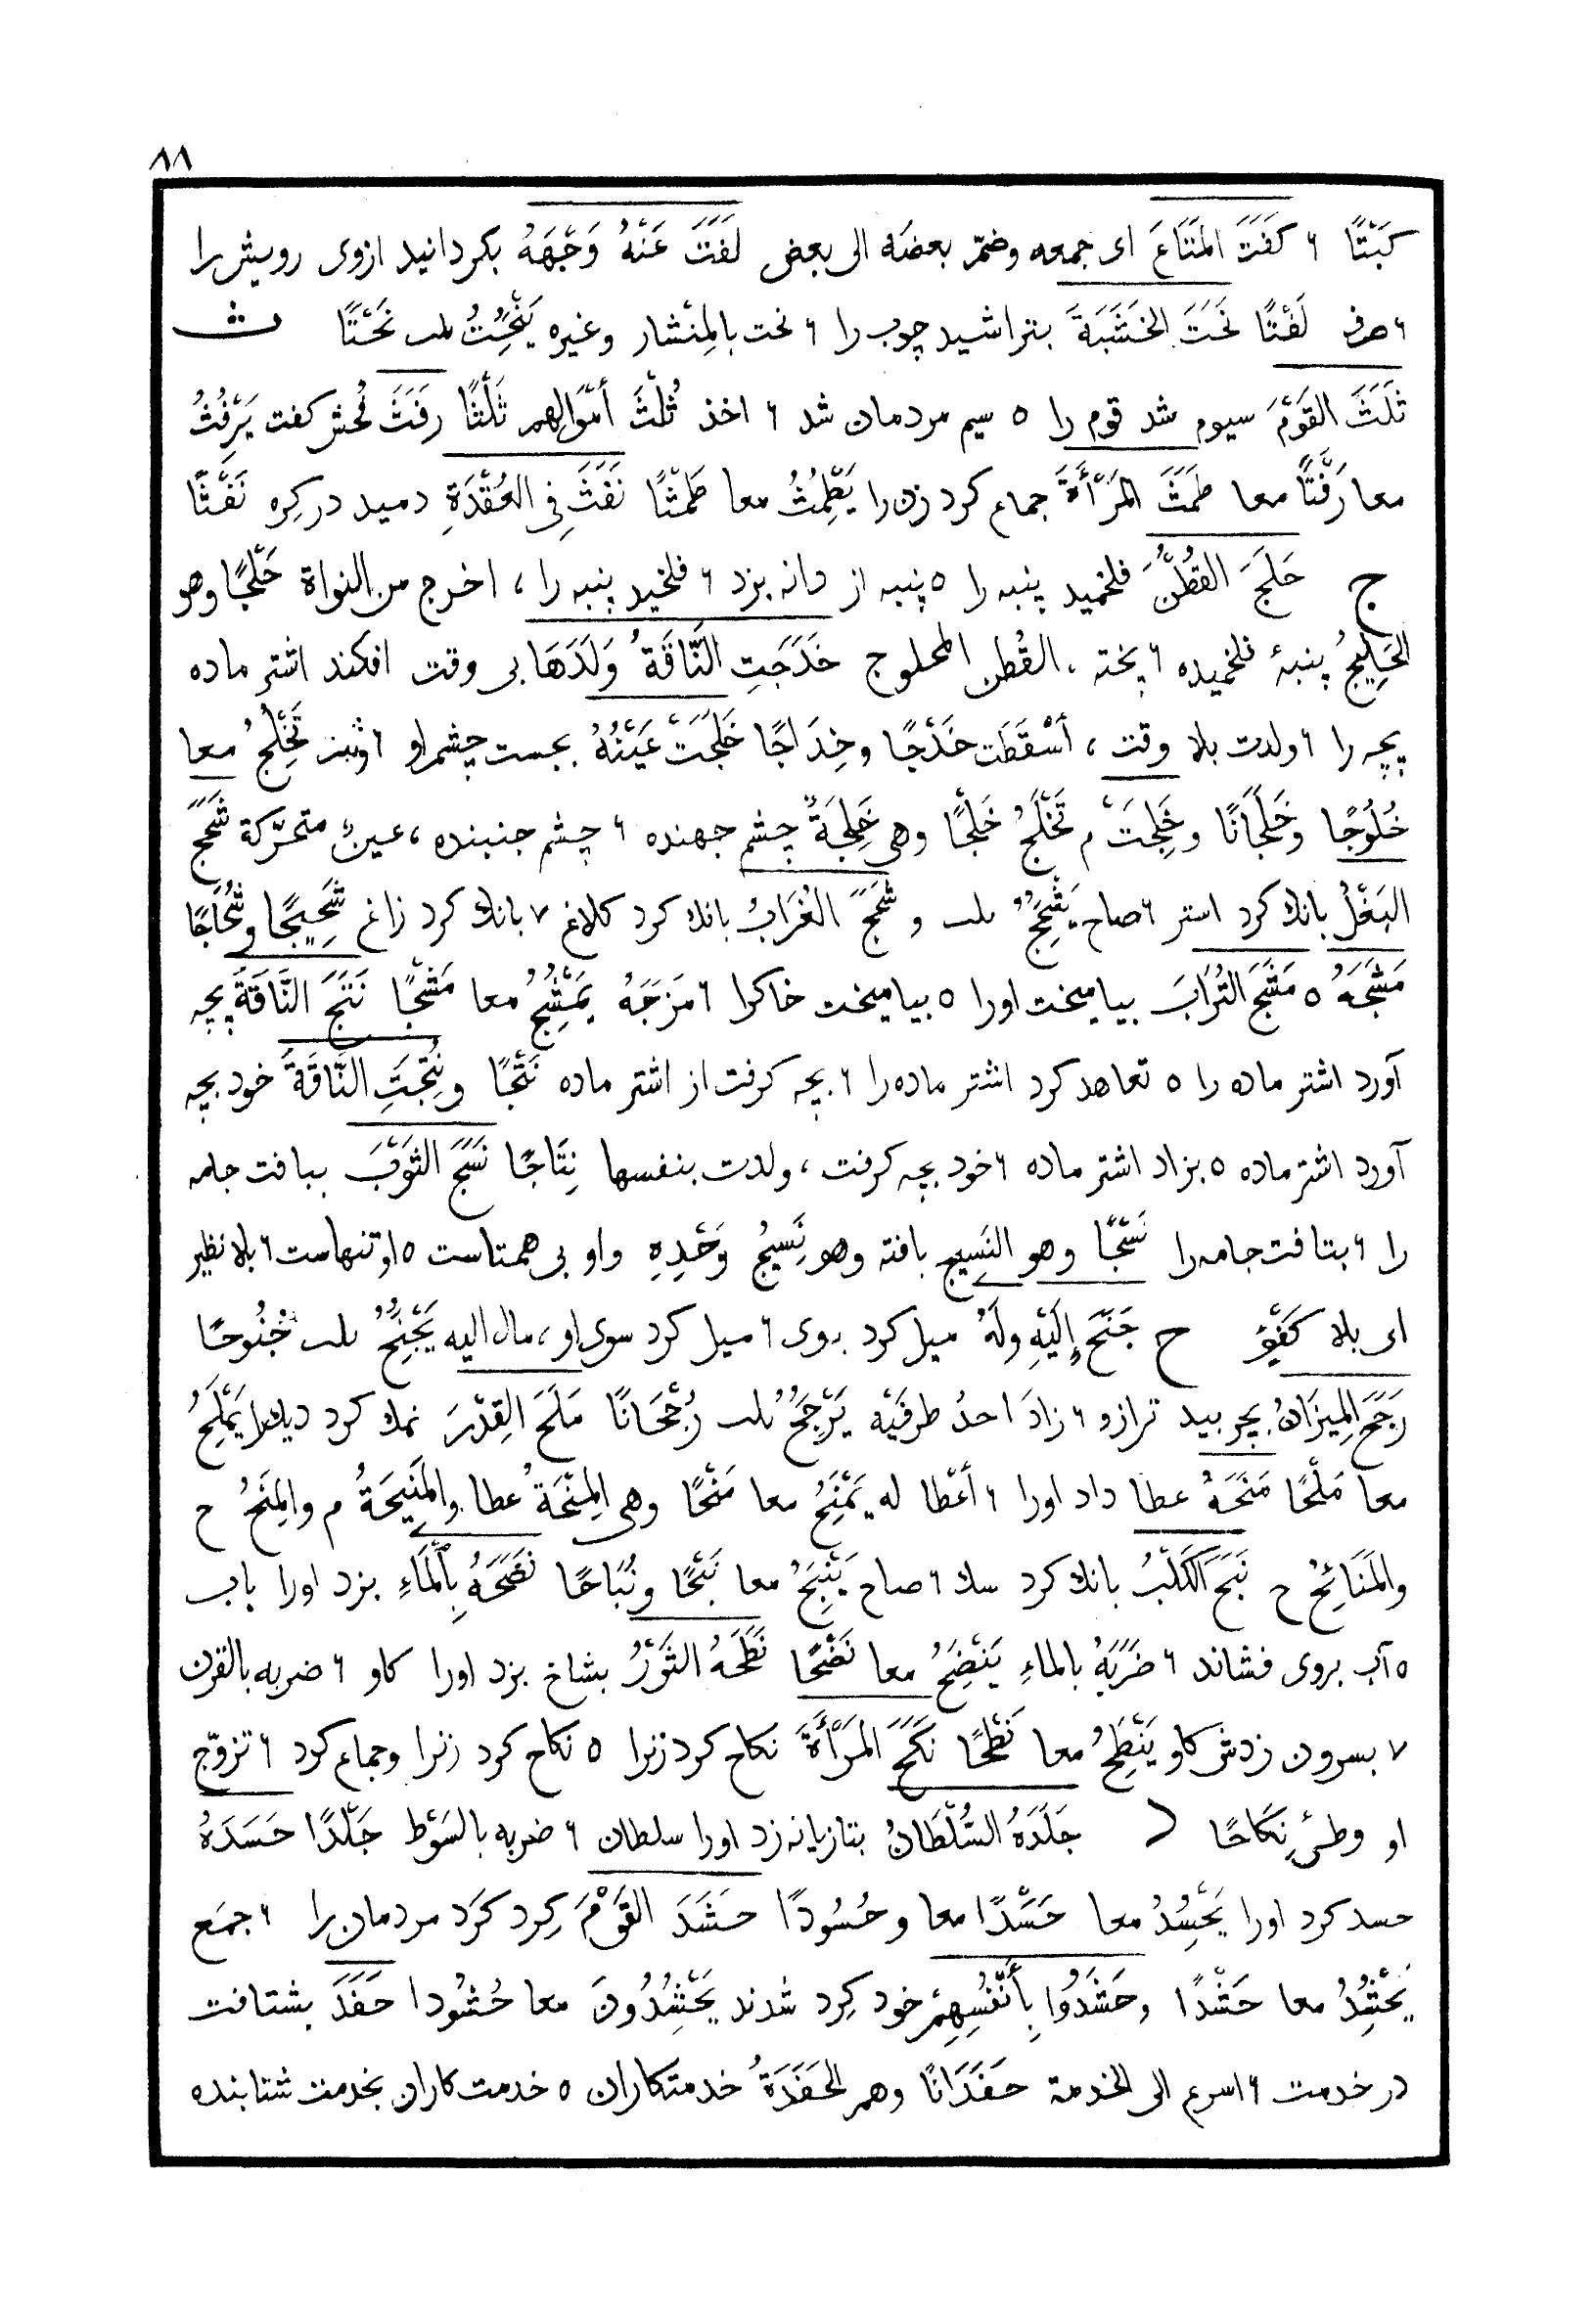 ٨٨
كَبْتًا ۶ كَفَتَ المَتَاعَ اى جمعه وضمّ بعضَه الى بعض لَفَتَ عَنْهُ وَجْهَهُ بكردانيد ازوى رويش را
۶ صرف لَفْتًا نَحَتَ الخَشَبَةَ بتراشيد چوب را ۶ نحت بالمِنْشار وغيره يَنْحِتُ نَحْتًا ث
ثَلَثَ القَوْمَ سيوم شد قوم را ٥ سيم مردمان شد ۶ اخذ ثُلْثَ أمْوَالِهم ثَلْثًا رَفَثَ فُحش كفت يَرْفِثُ
معا رَفْثًا معا طَمَثَ المَرْأَةَ جماع كرد زن را يَطْمِثُ معا طَمْثًا نَفَثَ فِى العُقْدَةِ دميد در كِره نَفْثًا
ج حَلَجَ القُطْنَ فلخميد پنبه را ٥ پنبه از دانه بزد ۶ فلخيد پنبه را ، اخرج من النواة حَلْجًا وهو
الحَلِيجُ پنبهٔ فلخميده ۶ پخته ، القُطن المحلوج خَدَجَتِ النَّاقَةُ وَلَدَهَا بى وقت افكند اشتر ماده
بچه را ۶ ولدت بلا وقت ، أسْقَطَت خَدْجًا وخِدَاجًا خَلَجَتْ عَيْنُهُ بجست چشم او تَخْلِجُ معا
خُلُوجًا وخَلَجَانًا وخَلِجَتْ م تَخْلَجُ خَلْجًا وهى خَلِجَةٌ چشم جهنده ۶ چشم جنبنده ، عينٌ متحرّكة شَحَجَ
البَغْلُ بانك كرد استر ۶ صاح يَشْحِجُ و شَحَجَ الغُرَابُ بانك كرد كلاغ ٧ بانك كرد زاغ شَحِيجًا وشُحَاجًا
مَشَجَهُ ٥ مَشَجَ التُرَابَ بياميخت اورا ٥ بياميخت خاكرا ۶ مَزَجَهُ يَمْشِجُ معا مَشْجًا نَتَجَ النَّاقَةَ بچه
آورد اشتر ماده را ٥ تعاهد كرد اشتر ماده را ۶ بچه كرفت از اشتر ماده نَتْجًا ونُتِجَتِ النَّاقَةُ خود بچه
آورد اشتر ماده ٥ بزاد اشتر ماده ۶ خود بچه كرفت ، ولدت بنفسها نِتَاجًا نَسَجَ الثَوْبَ ببافت جامه
را ۶ بتافت جامه را نَسْجًا وهو النَسِيج بافته وهو نَسِيجُ وَحْدِهِ واو بى همتاست ٥ او تنهاست ۶ بلا نظير
اى بلا كَفْؤٍ ح جَنَحَ إِلَيْهِ ولَهُ ميل كرد بوى ۶ ميل كرد سوى او ، مال اليه يَجْنِحُ جُنُوحًا
رَجَحَ المِيزَانُ بچربيد ترازو ۶ زادَ احدُ طرفَيْه يَرْجِحُ رُجْحَانًا مَلَحَ القِدْرَ نمك كرد ديكرا يَمْلِحُ
معا مَلْحًا مَنَحَهُ عطا داد اورا ۶ أعْطا له يَمْنِحُ معا مَنْحًا وهى المِنْحَةُ عطا والمَنِيحَةُ م والمِنَحُ ح
والمَنَائِحُ ح نَبَحَ الكَلْبُ بانك كرد سك ۶ صاح يَنْبِحُ معا نَبْحًا ونُبَاحًا نَضَحَهُ بِالْمَاءِ بزد اورا باب
٥ آب بروى فشاند ۶ ضَرَبَهُ بالماءِ يَنْضِحُ معا نَضْحًا نَطَحَهُ الثَوْرُ بشاخ بزد اورا كاو ۶ ضربه بالقرن
٧ بسرون زدش كاو يَنْطِحُ معا نَطْحًا نَكَحَ المَرْأَةَ نكاح كرد زنرا ٥ نكاح كرد زنرا وجماع كرد ۶ تزوّج
او وطئ نِكَاحًا د جَلَدَهُ السُّلْطَانُ بتازيانه زد اورا سلطان ۶ ضربه بالسَوْط جَلْدًا حَسَدَهُ
حسد كرد اورا يَحْسِدُ معا حَسَدًا معا وحُسُودًا حَشَدَ القَوْمَ كِرد كَرد مردمان را ۶ جمَع
يَحْشِدُ معا حَشْدًا وحَشَدُوا بِأَنْفُسِهِمْ خود كِرد شدند يَحْشِدُونَ معا حُشُودا حَفَدَ بشتافت
در خدمت ۶ اسرع الى الخدمة حَفَدَانًا وهم الحَفَدَةُ خدمتكاران ٥ خدمت كاران بخدمت شتابنده